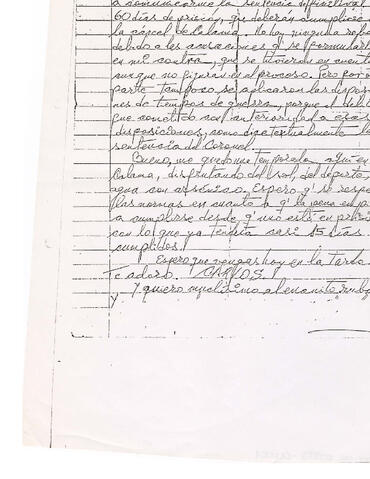 a comunicarme la sentencia definitiva:
60 días de prisión, que deberán cumplirse
la cárcel de Calama. No hay ninguna
debido a las acusaciones q' se formularon
en mi contra, que se tuvieron en cuenta
aunque no figuran en el proceso. Pero por
parte tampoco se aplicaron las disposi
nes de tiempos de guerra, porque el delito
fue cometido con anterioridad a esas
disposiciones, como dice textualmente la
sentencia del Coronel.
Bueno, me queda una temporada aquí en
Calama, disfrutando del sol, del deporte,
agua con arsénico. Espero q' se respe
las normas en cuanto a q' la pena empi
a cumplirse desde q' uno está en prisi
con lo que ya tendría casi 15 días
cumplidos.
Espero que vengas hoy en la tarde
Te adoro. CARLOS.
Y quiero muchísimo al
y